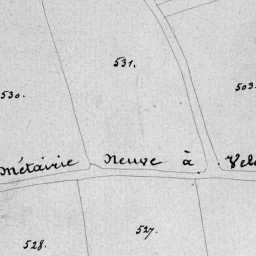 531.
530.
503
Métairie Neuve à
527.
528.